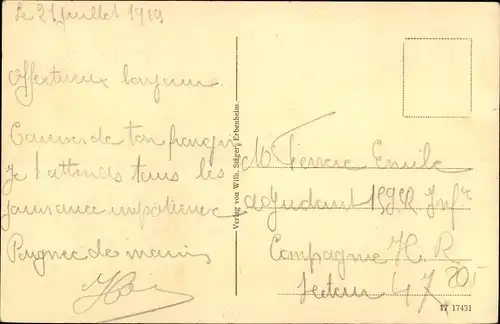 Le 21 juillet 1919
Affectueux bonjour
Caresses de ton
Je t'attends tous les
jours avec impatience
Poignee de mains
Verlag von Wilh. Stäger, Erbenheim.
Mr Pierre Emile
adjudant Inf
Compagnie H. R
Secteur 47
20,-
17 17431